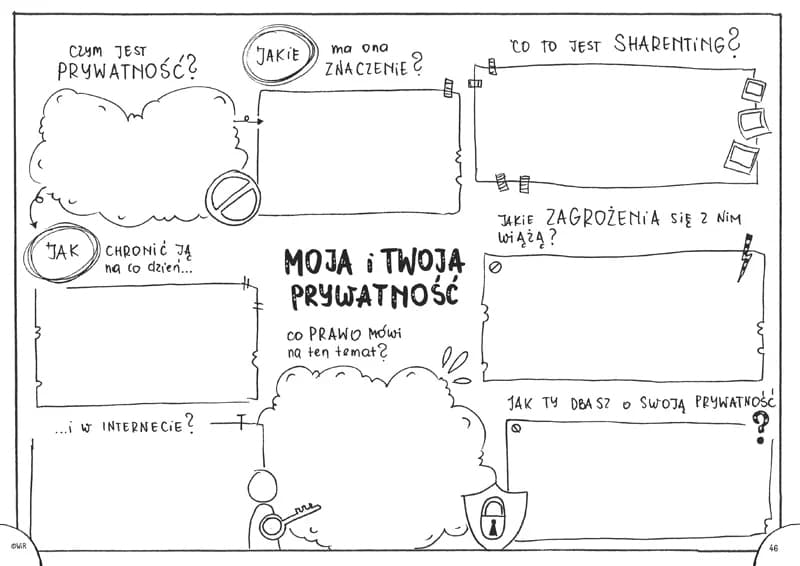 CZYM JEST
PRYWATNOŚĆ?
JAKIE
ma ona
ZNACZENIE?
CO TO JEST SHARENTING?
JAK
CHRONIĆ JĄ
na co dzień...
MOJA i TWOJA
PRYWATNOŚĆ
JAKIE ZAGROŻENIA SIĘ Z NIM
WIĄŻĄ?
co PRAWO MÓWI
na ten temat?
...i W INTERNECIE?
JAK TY DBASZ o SWOJĄ PRYWATNOŚĆ
?
©WiR
46